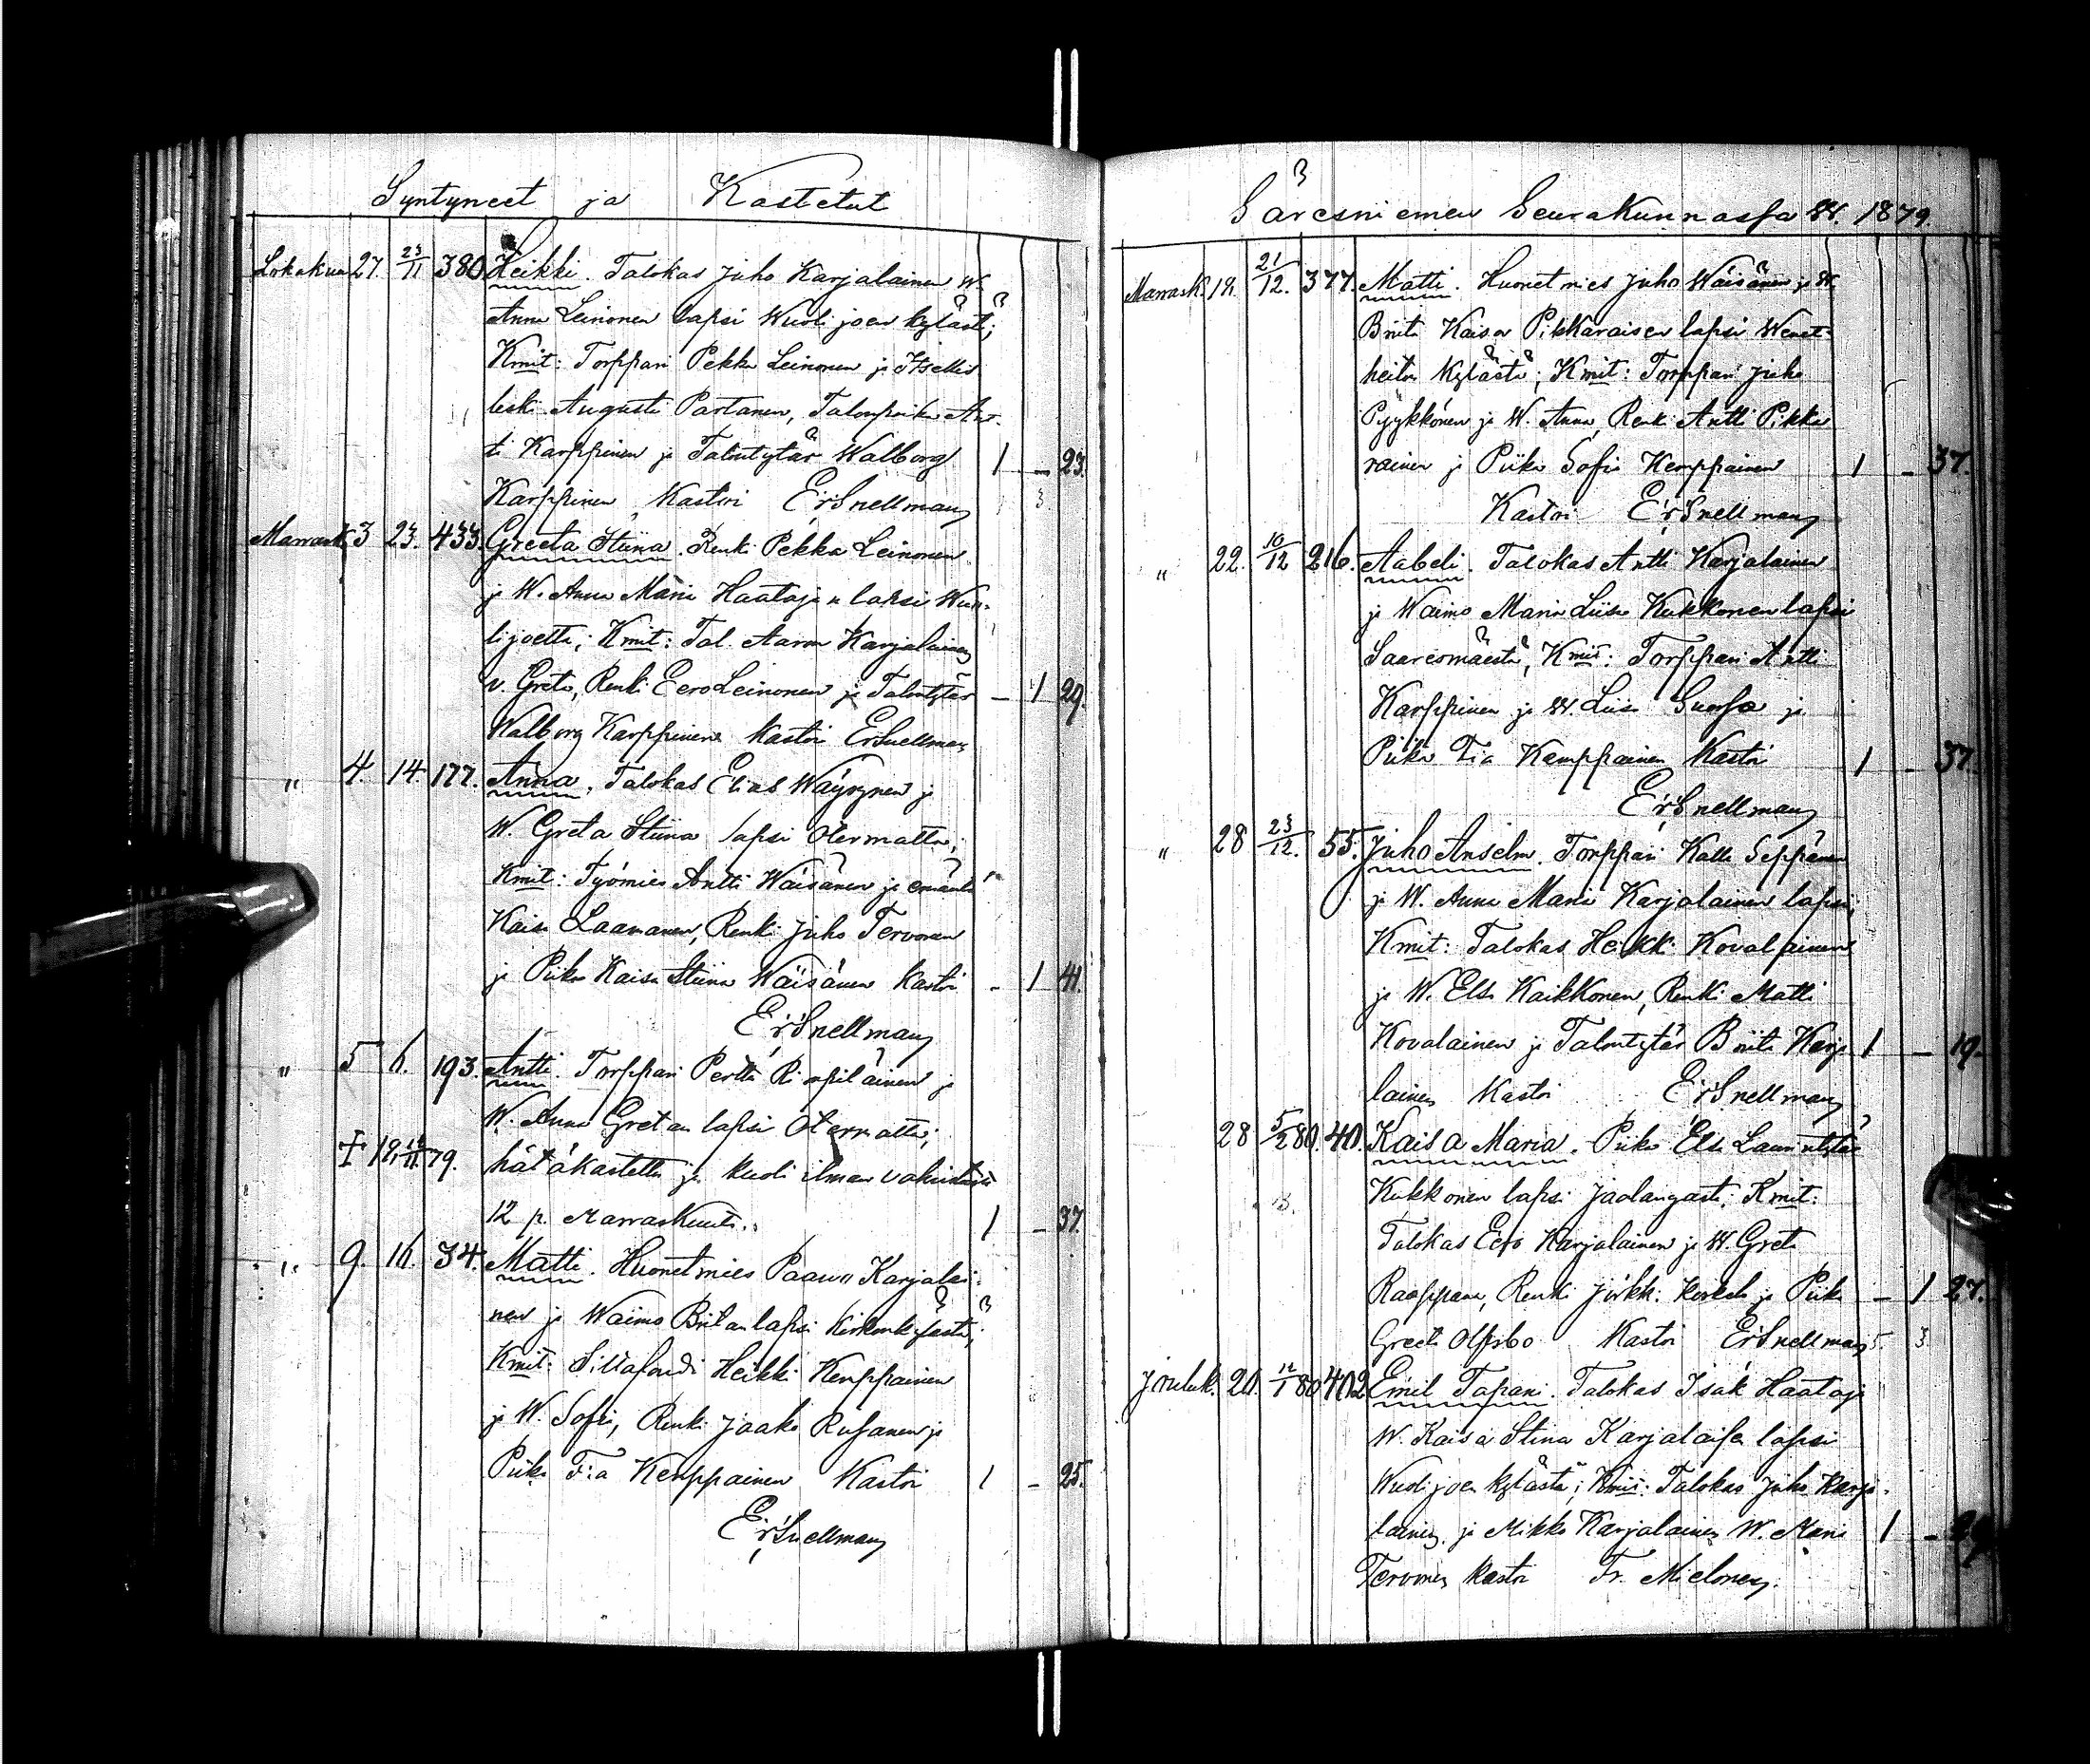 Syntyneet ja Kastetut
Lokakuu 27. 23/11 380 Heikki. Talokas Juho Karjalainen W.
Anna Leinonen lapsi Wuolijoen kylästä;
Kmit: Torppari Pekka Leinonen ja Itsellis
leski Augusta Partanen, Talonpoika Ant-
ti Karppinen ja Talontytär Walborg 1 – 23.
Karppinen, Kastoi E:r Snellman
Marrask. 3 23. 433. Greeta Stiina. Renki Pekka Leinonen
ja W. Anna Maria Haatajan lapsi Wuo-
lijoelta; Kmit: Tal. Aaron Karjalainen
v. Greta, Renki Eero Leinonen ja Talontytär – 1 29.
Walborg Karppinen Kastoi Er Snellman
" 4. 14. 177. Anna. Talokas Elias Wäyrynen ja
W. Greta Stiina lapsi Otermalta;
Kmit: Työmies Antti Wäisänen ja emäntä
Kaisa Laamanen, Renki Juho Tervonen
ja Piika Kaisa Stiina Wäisänen Kastoi – 1 41.
E:r Snellman
" 5 6. 193. Antti. Torppari Pertti Rimpiläinen ja
W. Anna Gretan lapsi Otermalta;
† 12. 12/11 79. hätäkastettu ja kuoli ilman vahvistusta
12 p. Marraskuuta. 1 – 37.
" 9. 16. 34. Matti. Huonetmies Paavo Karjalai-
nen ja Waimo Britan lapsi Kirkonkylästä;
Kmit: Heikki Kemppainen
ja W. Sofia, Renki Jaako Rusanen ja
Piika F:a Kemppainen Kastoi 1 – 25.
E:r Snellman
Säresniemen Seurakunnassa W. 1879.
Marrask. 18. 21/12. 377. Matti. Huonetmies Juho Wäisänen ja W.
Briita Kaisa Pikkaraisen lapsi Wenet-
heiton kylästä; Kmit: Torppari Juho
Pyykkönen ja W. Anna, Renki Antti Pikka
rainen ja Piika Sofia Kemppainen 1 – 37.
Kastoi E:r Snellman
" 22. 10/12 216. Aabeli. Talokas Antti Karjalainen
ja Waimo Maria Liisa Kukkonen lapsi
Saaresmäestä, Kmit: Torppari Antti
Karppinen ja W. Liisa ja
Piika Fia Kemppainen Kastoi 1 – 37.
E:r Snellman
" 28 23/12. 55. Juho Anselm. Torppari Kalle Seppänen
ja W. Anna Maria Karjalainen lapsi,
Kmit: Talokas Heikki Kovalainen
ja W. Elsa Kaikkonen, Renki Matti
Kovalainen ja Talontytär Briita Karja 1 – 19.
lainen Kastoi E:r Snellman
28 5/2 80. 40. Kaisa Maria. Piika Elsa Laurintytär
Kukkonen lapsi Jaalangasta; Kmit:
Talokas Eero Karjalainen ja W. Greta
Raappana, Renki ja Piika – 1 27.
Greeta Kastoi E:r Snellman
Jouluk. 20. 12/1 80 402 Emil Tapani. Talokas Isak Haataja
W. Kaisa Stina Karjalaisen lapsi
Wuolijoen kylästä; Kmit: Talokas Juho Karja-
lainen ja Mikko Karjalainen W. Maria 1 –
Tervonen Kastoi Fr. Mielonen.